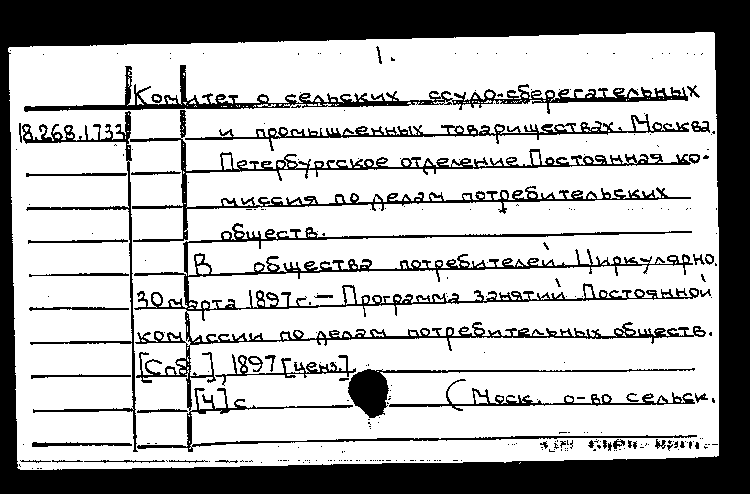 1.
Комитет о сельских ссудо-сберегательных
18.268.1733 и промышленных товариществах. Москва.
Петербургское отделение. Постоянная ко-
миссия по делам потребительских
обществ.
В общества потребителей. Циркулярно.
30 марта 1897 г. — Программа занятий Постоянной
комиссии по делам потребительных обществ.
[Спб.], 1897 [ценз.].
[4] с. (Моск. о-во сельск.